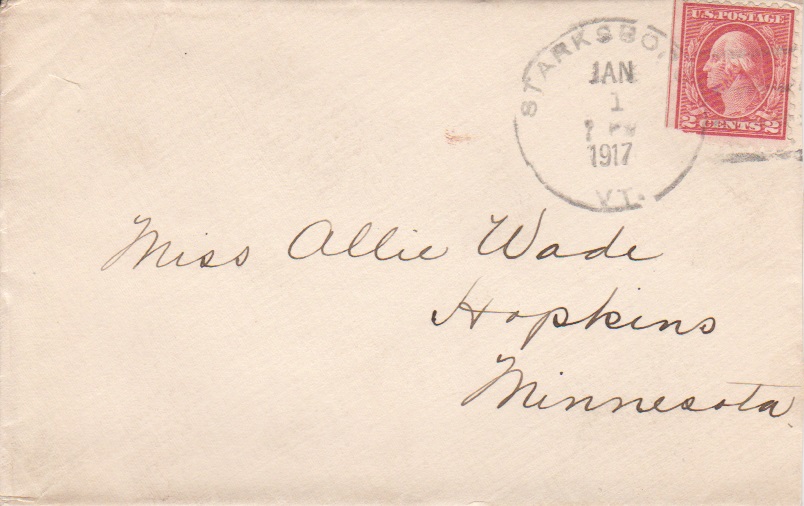 STARKSBO
JAN
1
1917
VT.
U.S. POSTAGE
2 CENTS 2
Miss Allie Wade
Hopkins
Minnesota